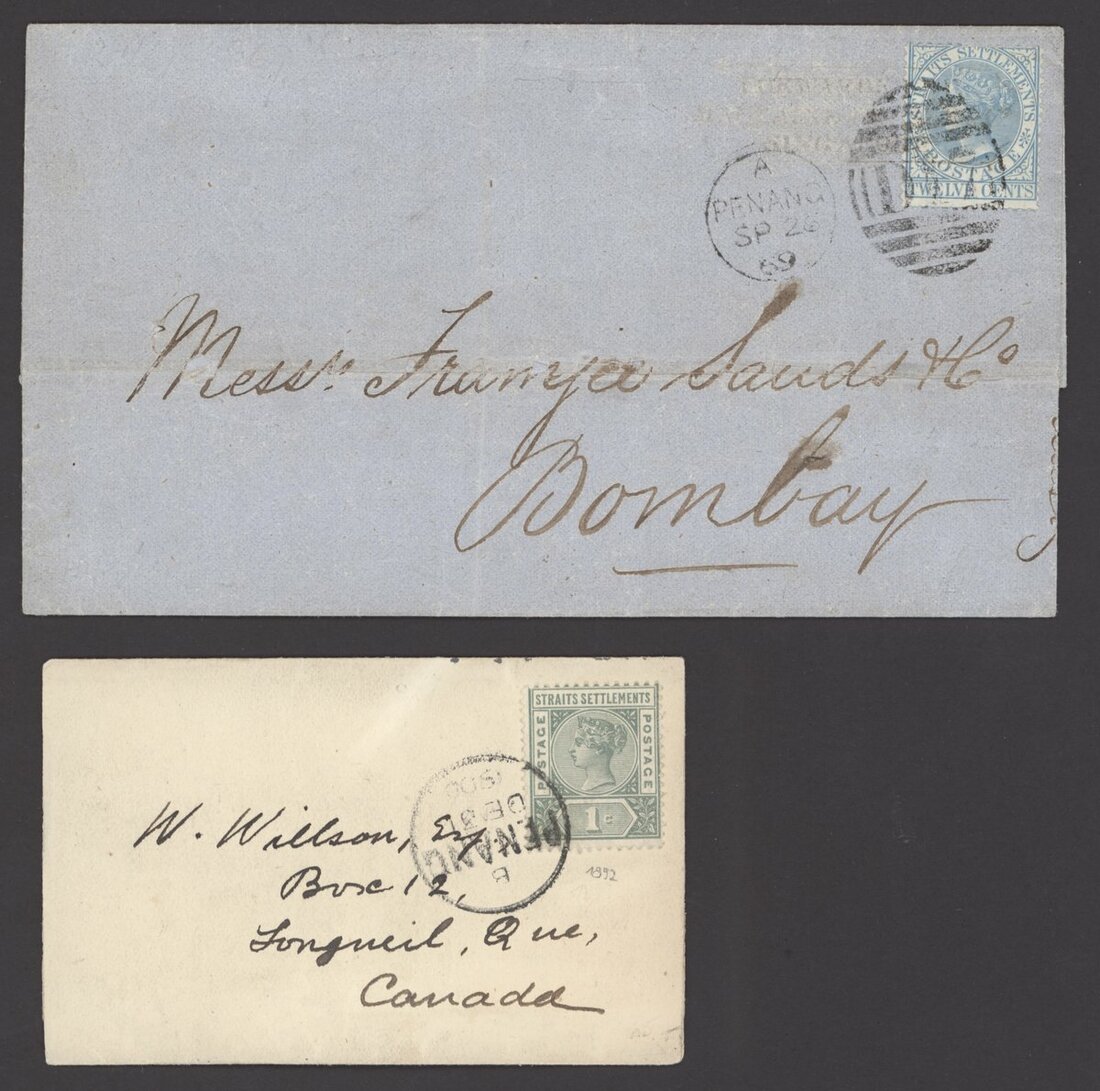 STRAITS SETTLEMENTS
POSTAGE
TWELVE CENTS
A
PENANG
SP 26
69
Messrs Framjee Sands & Co
Bombay
STRAITS SETTLEMENTS
POSTAGE
POSTAGE
1c
B
PENANG
DE 31
1900
1892
W. Willson, Esq
Box 12,
Longueil, Que,
Canada